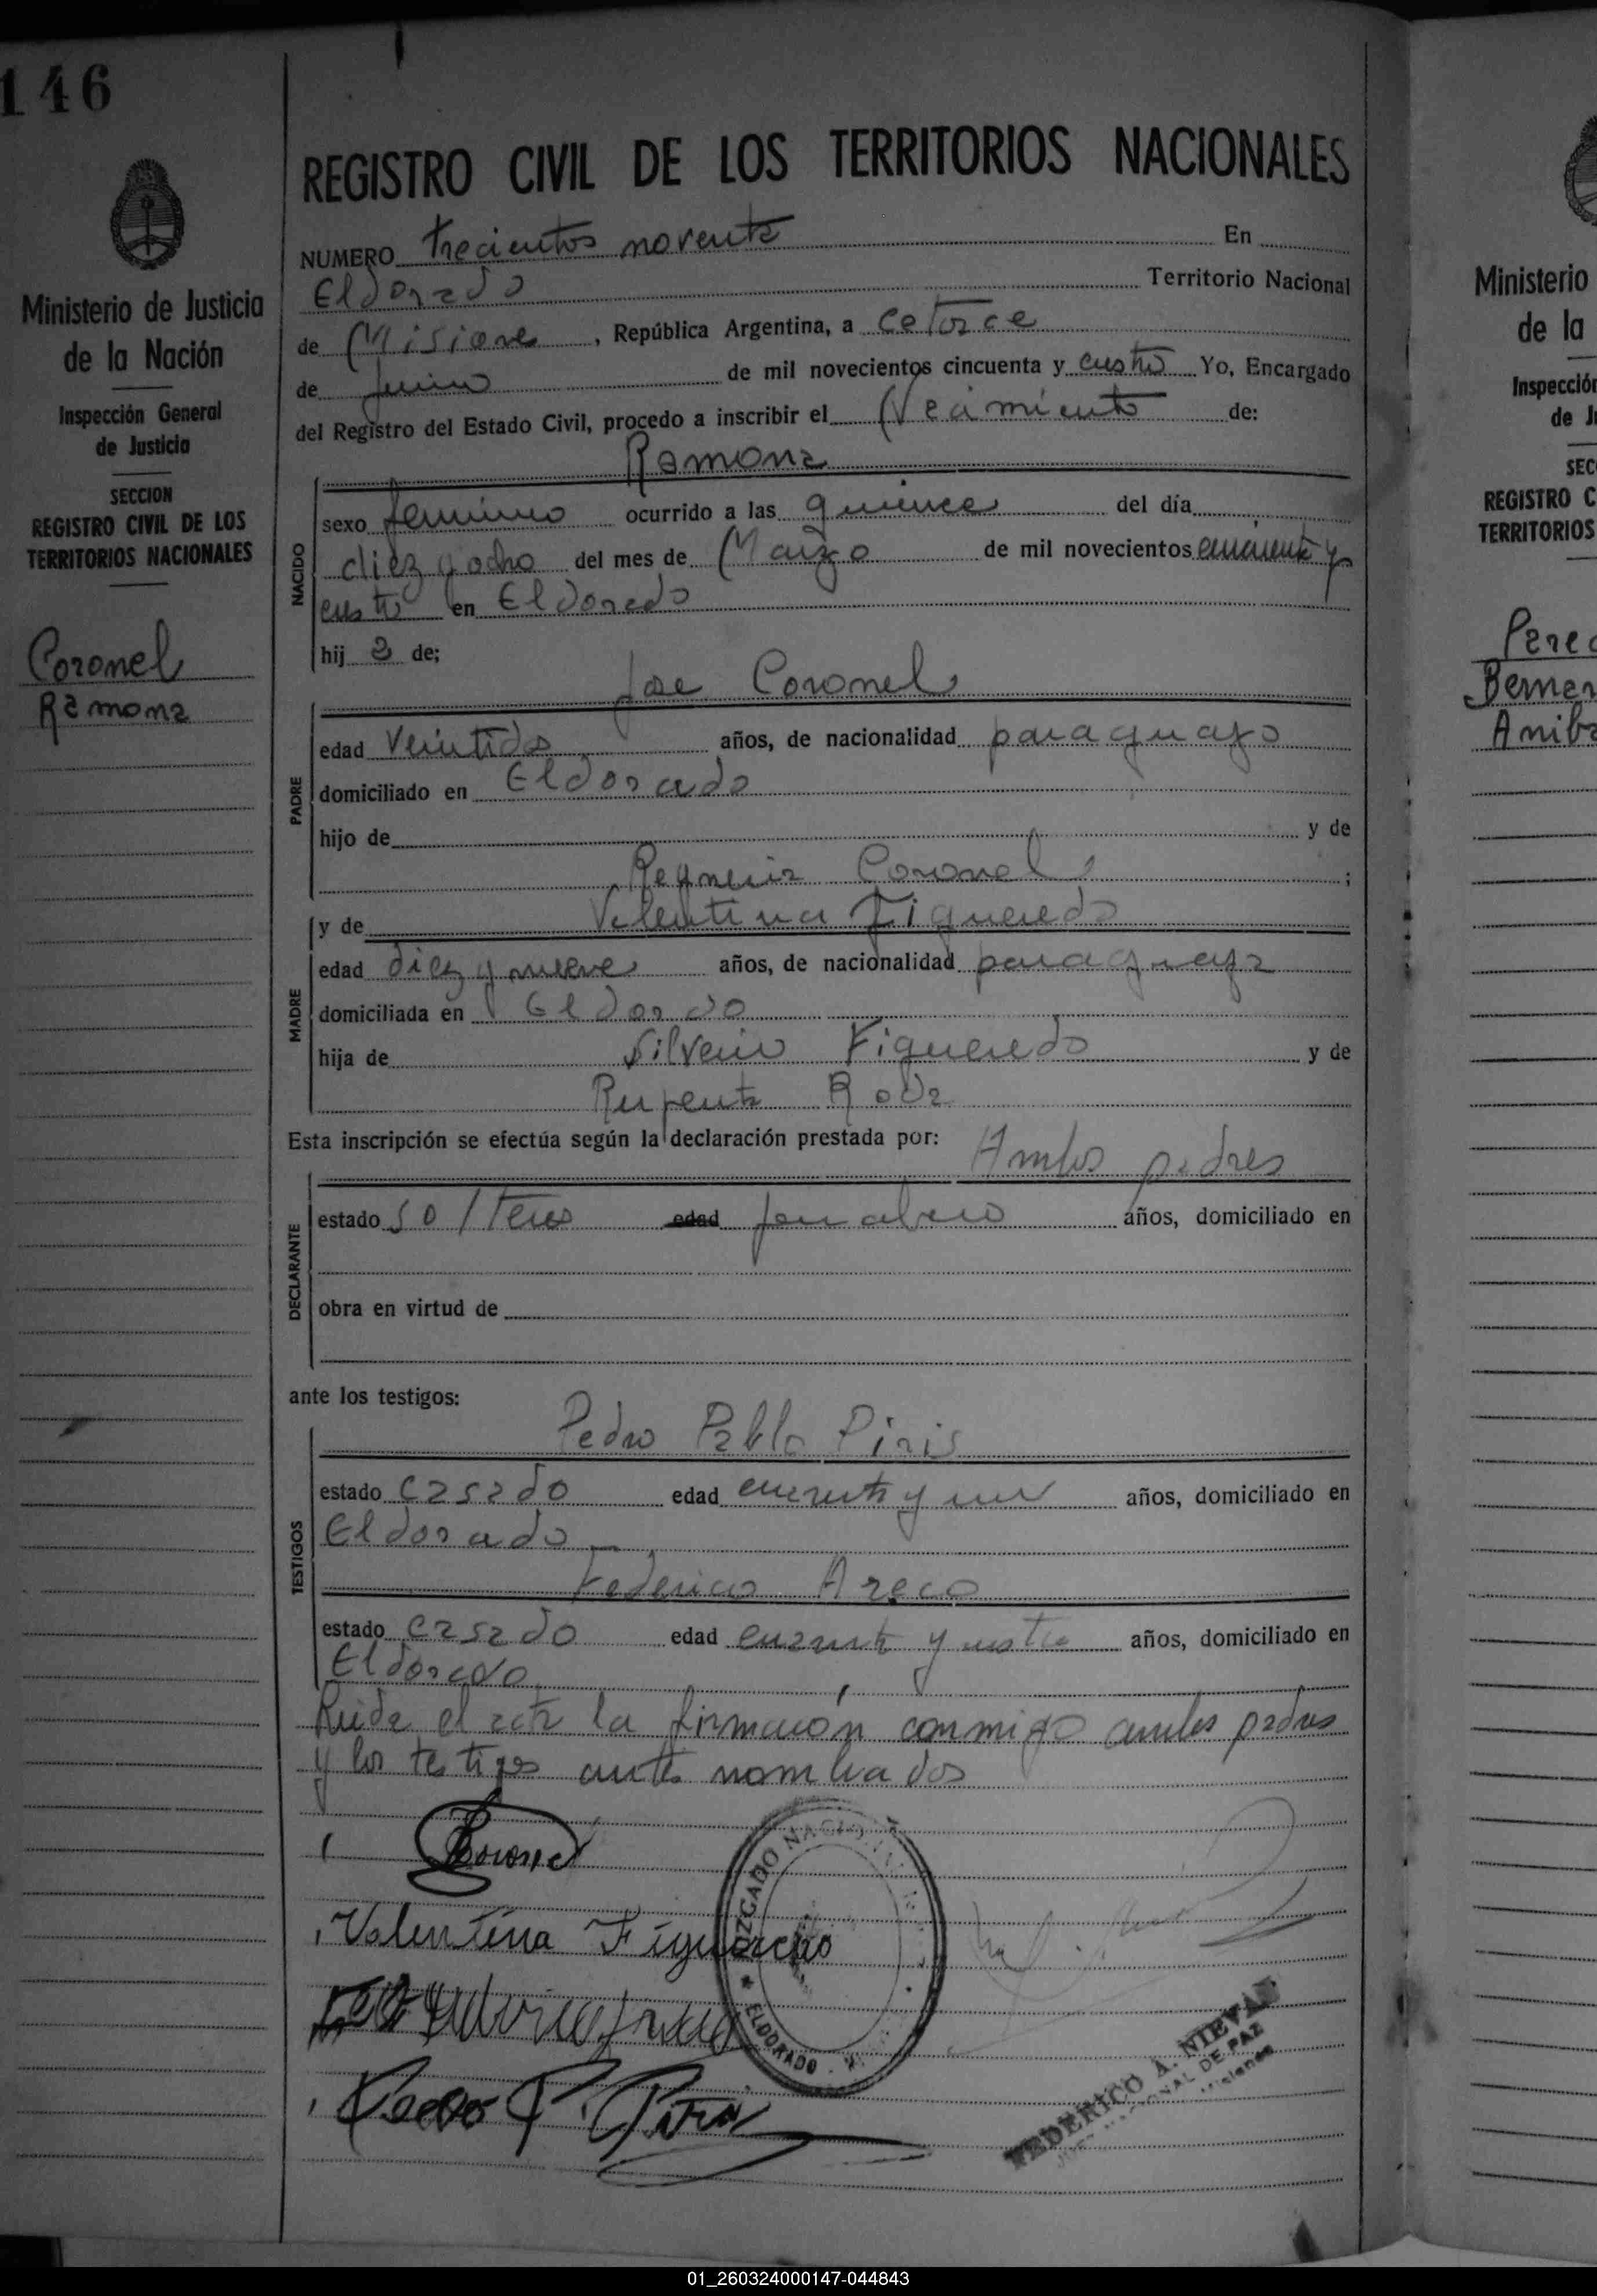 146
Ministerio de Justicia
de la Nación
Inspección General
de Justicia
SECCION
REGISTRO CIVIL DE LOS
TERRITORIOS NACIONALES
Coronel
Ramona
REGISTRO CIVIL DE LOS TERRITORIOS NACIONALES
NUMERO trecientos noventa En
Eldorado Territorio Nacional
de Misiones, República Argentina, a catorce
de Junio de mil novecientos cincuenta y cuatro Yo, Encargado
del Registro del Estado Civil, procedo a inscribir el Nacimiento de:
Ramona
NACIDO
sexo femenino ocurrido a las quince del día
diez y ocho del mes de Marzo de mil novecientos cincuenta y
cuatro en Eldorado
hij a de;
Jose Coronel
PADRE
edad Veintidos años, de nacionalidad paraguayo
domiciliado en Eldorado
hijo de y de
Coronel ;
y de Valentina Figueredo
MADRE
edad diez y nueve años, de nacionalidad paraguaya
domiciliada en Eldorado
hija de Silverio Figueredo y de
Roda
Esta inscripción se efectúa según la declaración prestada por:
Ambos padres
DECLARANTE
estado solteros edad años, domiciliado en
obra en virtud de
ante los testigos:
Pedro Pablo Piris
TESTIGOS
estado casado edad cuarenta y un años, domiciliado en
Eldorado
Federico Areco
estado casado edad cuarenta y cuatro años, domiciliado en
Eldorado
Leida el acta la firmaron conmigo ambos padres
y los testigos antes nombrados
Coronel
Valentina Figueredo
Pedro P. Piris
JUZGADO NACIONAL
ELDORADO
FEDERICO A. NIEVAS
JUEZ NACIONAL DE PAZ
Misiones
Ministerio
de la
Inspección
de J
SEC
REGISTRO C
TERRITORIOS
Pere
Bernar
Aniba
01_260324000147-044843